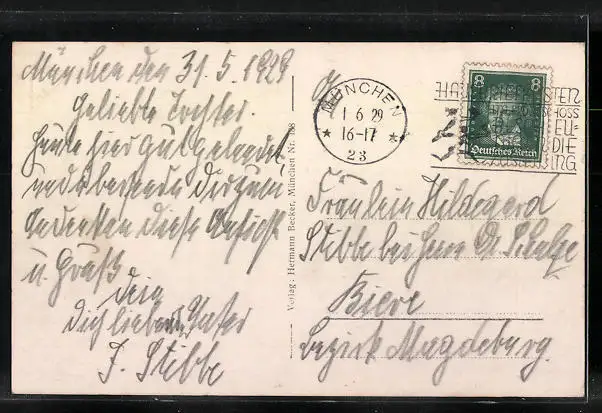 München den 31.5.1929
Geliebte Tochter.
Heute hier gut gelandet
und übersende dir zum
Andenken diese Ansicht
u. Gruß
dein
dich liebender Vater
F. Stebbe
Verlag: Hermann Becker, München Nr.
MÜNCHEN
1 6 29
16-17
23
8 8
Deutsches Reich
Fräulein Hildegard
Stebbe bei Herrn Dr. Schulze
Biere
Bezirk Magdeburg.